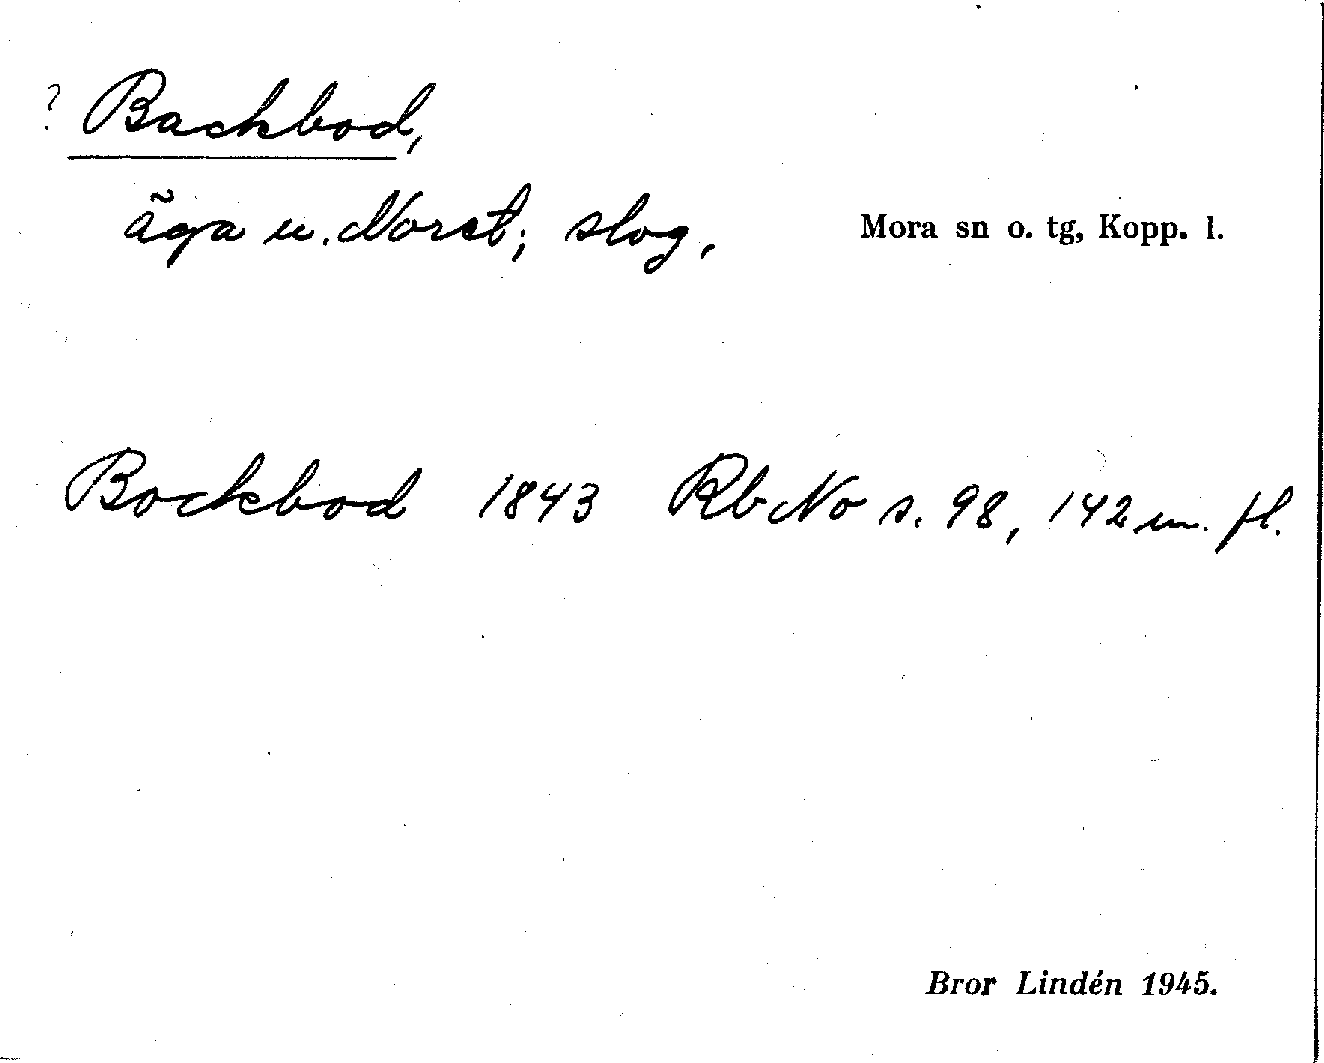 ? Backbod,
äga u. Noret; slog. Mora sn o. tg, Kopp. l.
Bockbod 1843 Rb No s. 98, 142 m. fl.
Bror Lindén 1945.